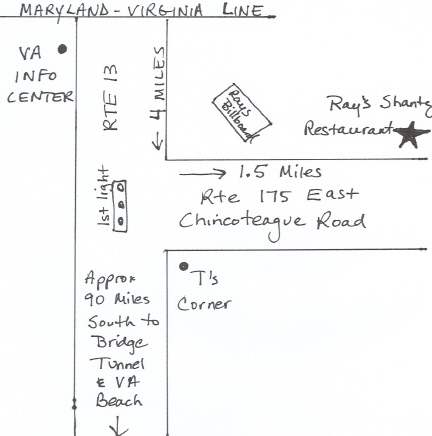 MARYLAND-VIRGINIA LINE
VA
INFO
CENTER
RTE 13
4 MILES
Ray's
Billboard
Ray's Shanty
Restaurant
1st light
1.5 Miles
Rte 175 East
Chincoteague Road
T's
Corner
Approx
90 Miles
South to
Bridge
Tunnel
& VA
Beach